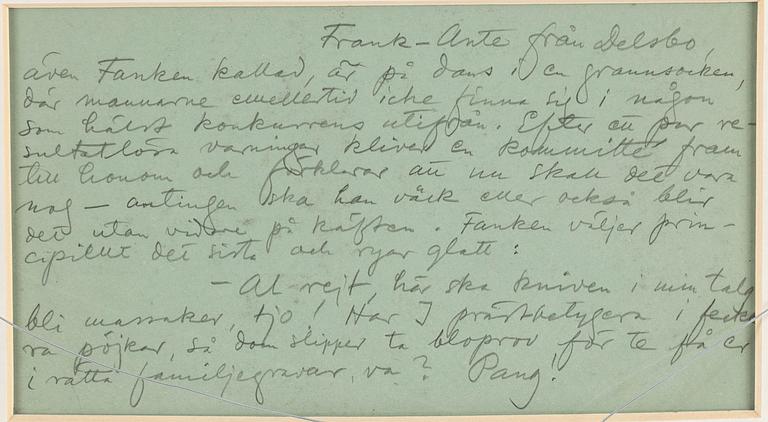 Frank-Ante från Delsbo,
även Fanken kallad, är på dans i en grannsocken,
där mannarne emellertid icke finna sig i någon
som hälst konkurrens utifrån. Efter ett par re-
sultatlösa varningar kliver en kommitté fram
till honom och förklarar att nu skall det vara
nog – antingen ska han väck eller också blir
det utan vidare på käften. Fanken väljer prin-
cipiellt det sista och ryar glatt:
– Al rejt, här ska kniven i min talg
bli massaker, tjo! Har I prästbetygera i fecke
ra pöjkar, så dom slipper ta bloprov för te få er
i rätta familjegravar, va? Pang!